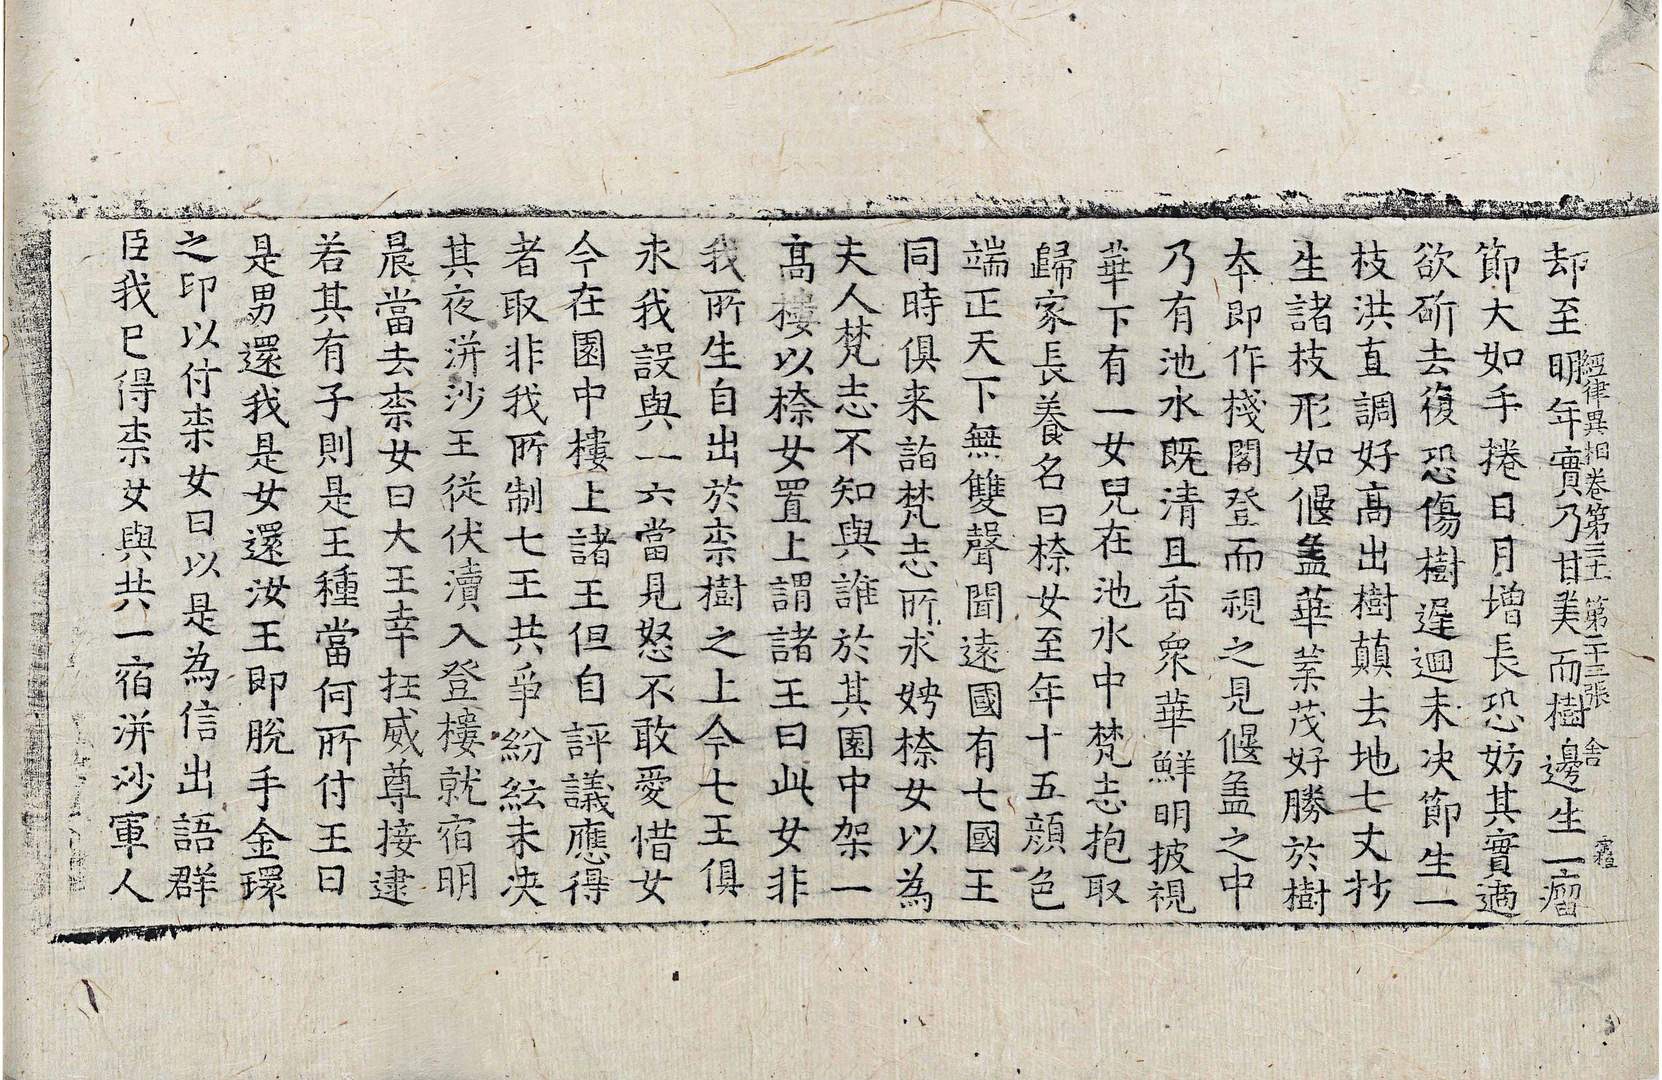 經律異相卷第三十一 第二十三張 舍
却至明年實乃甘美而樹邊生一瘤
節大如手捲日月增長恐妨其實適
欲斫去復恐傷樹遲迴未决節生一
枝洪直調好高出樹巔去地七丈抄
生諸枝形如偃盖華葉茂好勝於樹
夲即作棧閣登而視之見偃盖之中
乃有池水既清且香衆華鮮明披視
華下有一女兒在池水中梵志抱取
歸家長養名曰㮈女至年十五顔色
端正天下無雙聲聞遠國有七國王
同時俱来詣梵志所求娉㮈女以為
夫人梵志不知與誰於其園中架一
高樓以㮈女置上謂諸王曰此女非
我所生自出於柰樹之上今七王俱
求我設與一六當見怒不敢愛惜女
今在園中樓上諸王但自評議應得
者取非我所制七王共爭紛紜未决
其夜洴沙王從伏瀆入登樓就宿明
晨當去柰女曰大王幸抂威尊接逮
若其有子則是王種當何所付王曰
是男還我是女還汝王即脫手金環
之印以付柰女曰以是為信出語群
臣我已得柰女與共一宿洴沙軍人